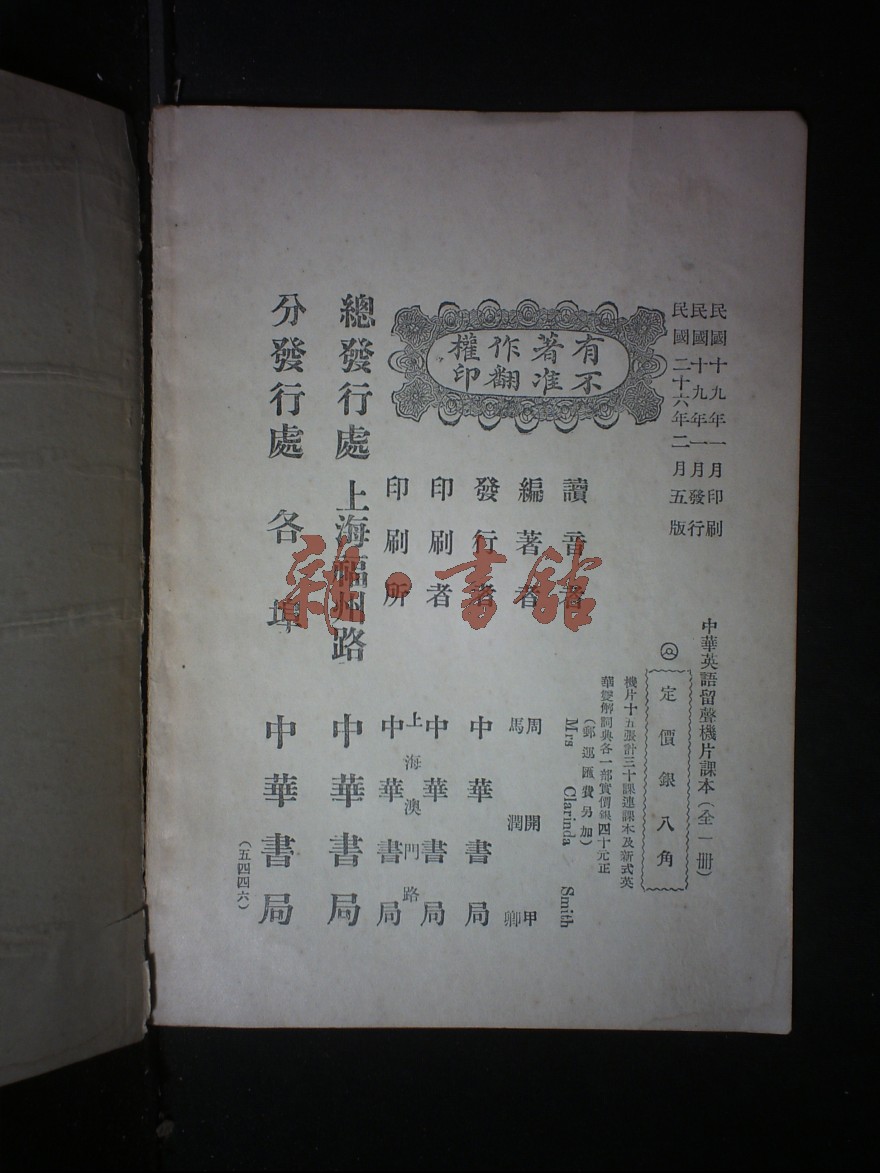 民國十九年一月印刷
民國十九年一月發行
民國二十六年二月五版
中華英語留聲機片課本（全一冊）
定價銀八角
機片十五張計三十課連課本及新式英
華雙解詞典各一部實價銀四十元正
（郵運匯費另加）
有著作權
不准翻印
讀音者 Mrs Clarinda Smith
編著者 周開甲 馬潤卿
發行者 中華書局
印刷者 中華書局
印刷所 上海澳門路 中華書局
總發行處 上海福州路 中華書局
分發行處 各埠 中華書局
（五四四六）
雜·書館